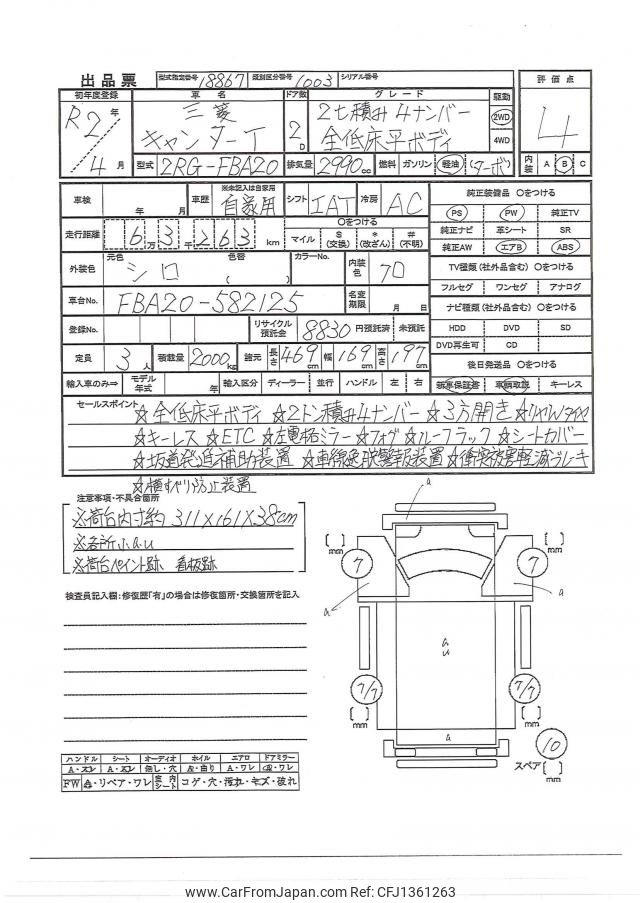 出品票 型式指定番号 18867 類別区分番号 1003 シリアル番号
初年度登録 車名 ドア数 グレード 駆動 評価点
R2年 三菱 2t積み4ナンバー 2WD 4
4月 キャンターT 2D 全低床平ボディ 4WD
型式 2RG-FBA20 排気量 2990cc 燃料 ガソリン 軽油 (ターボ) 内装 A B C
車検 年 月 車歴 ※未記入は自家用 自家用 シフト IAT 冷房 AC 純正装備品 〇をつける
PS PW 純正TV
走行距離 6万3千263km 〇をつける マイル $(交換) *(改ざん) #(不明) 純正ナビ 革シート SR
純正AW エアB ABS
外装色 元色 シロ 色替 ( ) カラーNo. 内装色 クロ TV種類(社外品含む) 〇をつける
フルセグ ワンセグ アナログ
車台No. FBA20-582125 名変期限 月 日 ナビ種類(社外品含む) 〇をつける
登録No. リサイクル預託金 8830 円預託済 未預託 HDD DVD SD
DVD再生可 CD
定員 3人 積載量 2000kg 諸元 長さ469cm 幅169cm 高さ197cm 後日発送品 〇をつける
輸入車のみ⇒ モデル年式 年 輸入区分 ディーラー 並行 ハンドル 左 右 新車保証書 車輌取説 キーレス
セールスポイント ☆全低床平ボディ ☆2トン積み4ナンバー ☆3方開き ☆リヤWタイヤ
☆キーレス ☆ETC ☆左電格ミラー ☆フォグ ☆ルーフラック ☆シートカバー
☆坂道発進補助装置 ☆車線逸脱警報装置 ☆衝突被害軽減ブレーキ
☆横すべり防止装置
注意事項・不具合箇所
※荷台内寸約 311×161×38cm
※各所小a.u
※荷台ペイント跡 看板跡
検査員記入欄:修復歴「有」の場合は修復箇所・交換箇所を記入
a
[ ] mm 7 7 [ ] mm
a a
a
u
7/7 7/7
[ ] mm [ ] mm
a
10
スペア [ ] mm
ハンドル シート オーディオ ホイル エアロ ドアミラー
A・スレ A・スレ 無し・穴 A・曲り A・ワレ A・ワレ
FW A・リペア・ワレ 室内シート コゲ・穴・汚れ・キズ・破れ
www.CarFromJapan.com Ref: CFJ1361263